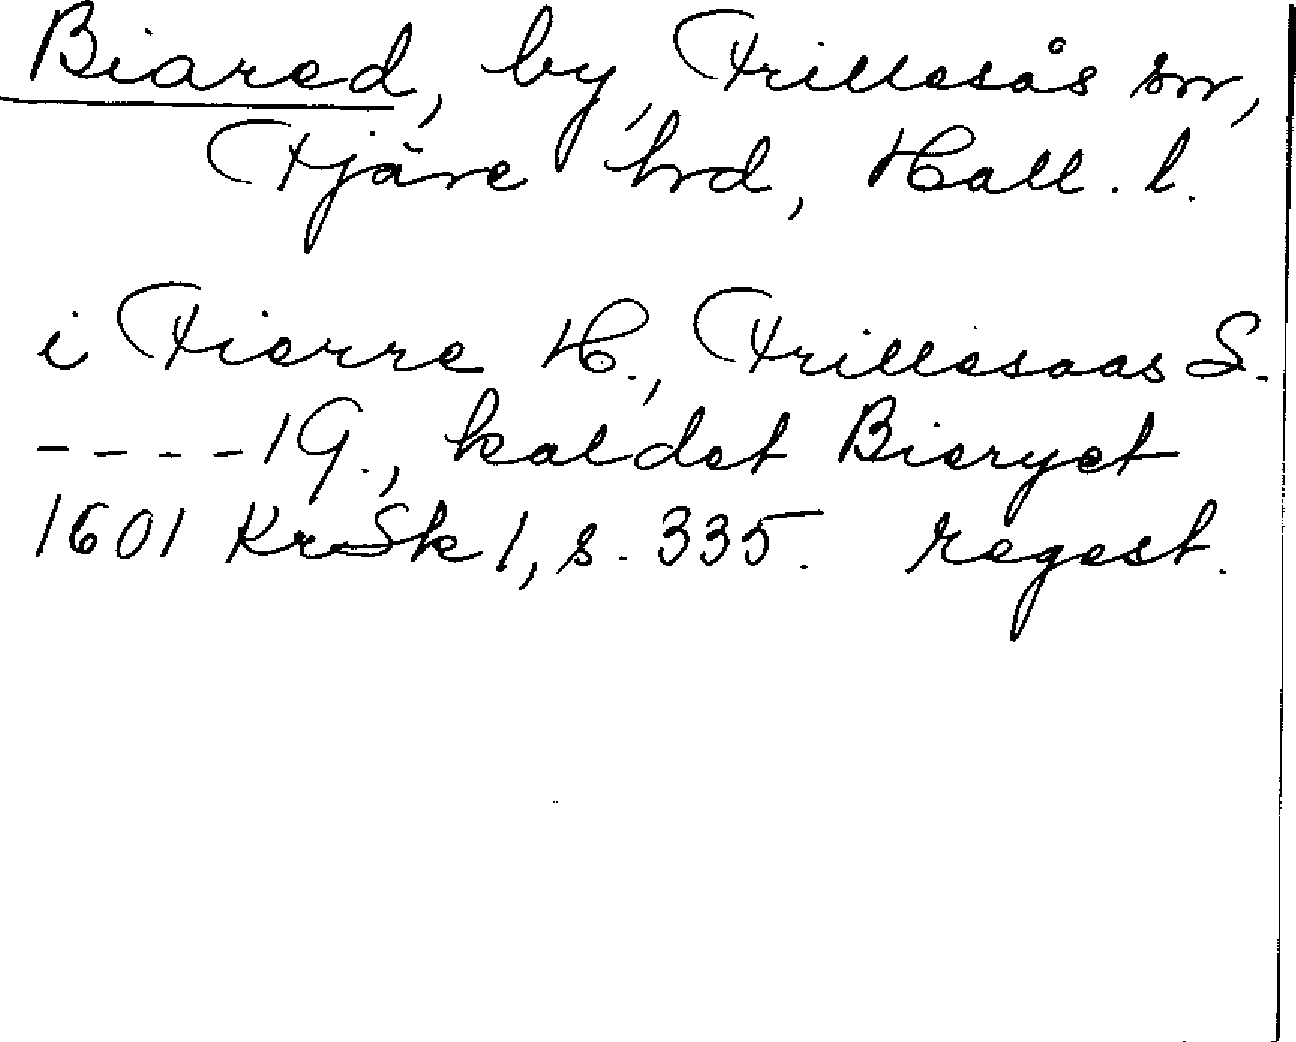 Biared, by, Frillesås sn,
Fjäre hrd, Hall. l.
i Fierre H., Frillesaas S.
----1G., kaldet Bieryet
1601 KrSk1, s. 335. regest.